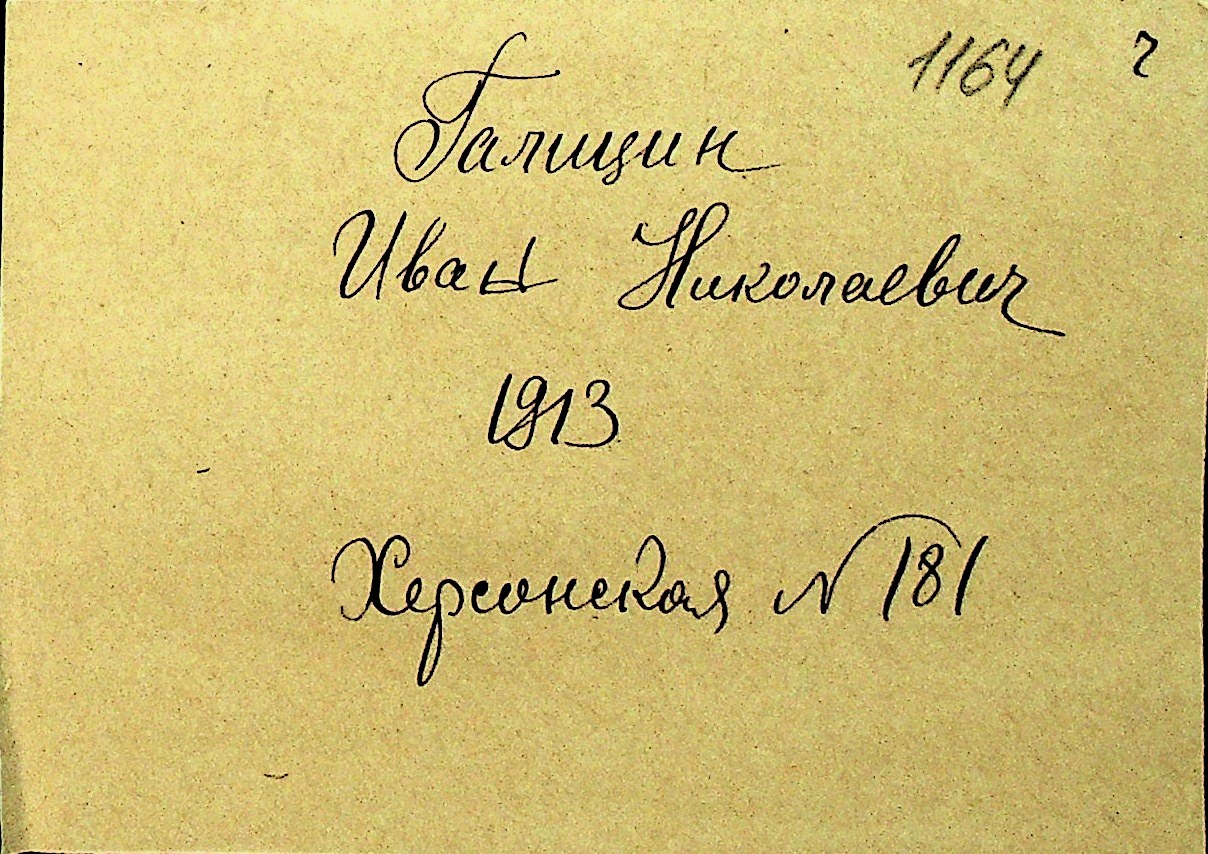 1164 г
Галицин
Иван Николаевич
1913
Херсонская N 181